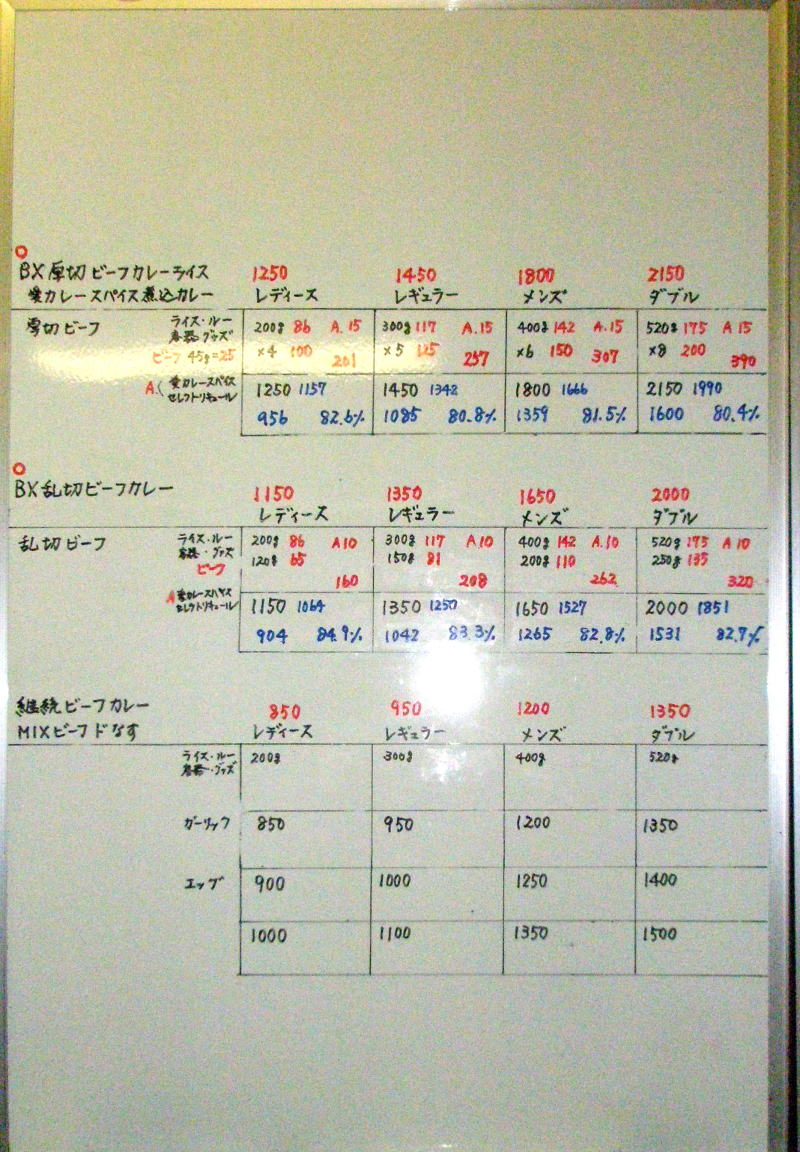 BX厚切ビーフカレーライス 1250 1450 1800 2150
愛カレースパイス煮込カレー レディース レギュラー メンズ ダブル
厚切ビーフ ライス・ルー 200g 86 A.15 300g 117 A.15 400g 142 A.15 520g 175 A 15
容器 グッズ
ビーフ 45g=25 ×4 100 201 ×5 125 257 ×6 150 307 ×8 200 390
A.( 愛カレースパイス 1250 1157 1450 1342 1800 1666 2150 1990
セレクトリキュール 956 82.6% 1085 80.8% 1359 81.5% 1600 80.4%
BX乱切ビーフカレー 1150 1350 1650 2000
レディース レギュラー メンズ ダブル
乱切ビーフ ライス・ルー 200g 86 A10 300g 117 A.10 400g 142 A.10 520g 175 A 10
容器・グッズ 120g 65 150g 81 200g 110 250g 135
ビーフ 160 208 262 320
A 愛カレースパイス 1150 1064 1350 1250 1650 1527 2000 1851
セレクトリキュール 904 84.9% 1042 83.3% 1265 82.8% 1531 82.7%
継続ビーフカレー 850 950 1200 1350
MIXビーフドなす レディース レギュラー メンズ ダブル
ライス・ルー 200g 300g 400g 520g
容器・グッズ
ガーリック 850 950 1200 1350
エッグ 900 1000 1250 1400
1000 1100 1350 1500